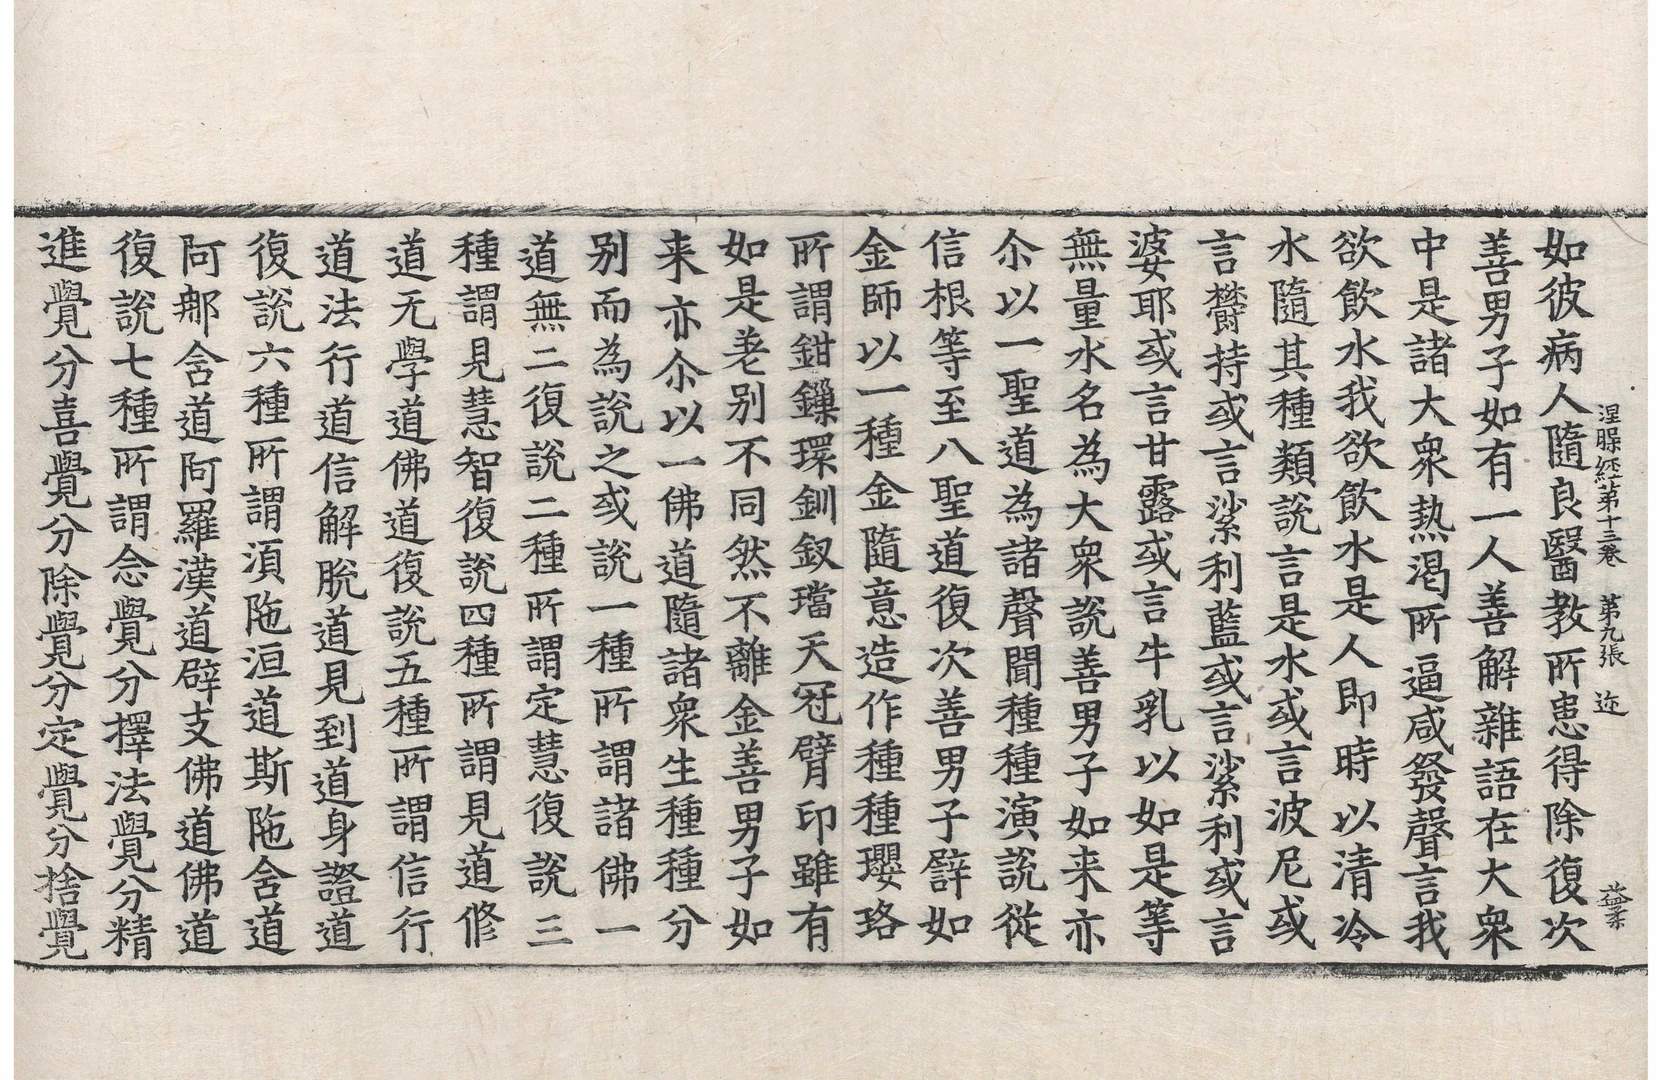 涅槃経第十三卷　第九張　迩　益柔
如彼病人隨良醫教所患得除復次
善男子如有一人善解雜語在大衆
中是諸大衆熱渴所逼咸發聲言我
欲飲水我欲飲水是人即時以清冷
水隨其種類說言是水或言波尼或
言欝持或言利藍或言利或言
婆耶或言甘露或言牛乳以如是等
無量水名為大衆說善男子如来亦
尒以一聖道為諸聲聞種種演說從
信根等至八聖道復次善男子譬如
金師以一種金隨意造作種種瓔珞
所謂鉗鏁環釧釵璫天冠臂印雖有
如是差别不同然不離金善男子如
来亦尒以一佛道隨諸衆生種種分
别而為說之或說一種所謂諸佛一
道無二復說二種所謂定慧復說三
種謂見慧智復說四種所謂見道修
道无學道佛道復說五種所謂信行
道法行道信解脫道見到道身證道
復說六種所謂湏陁洹道斯陁含道
阿那含道阿羅漢道辟支佛道佛道
復說七種所謂念覺分擇法覺分精
進覺分喜覺分除覺分定覺分捨覺